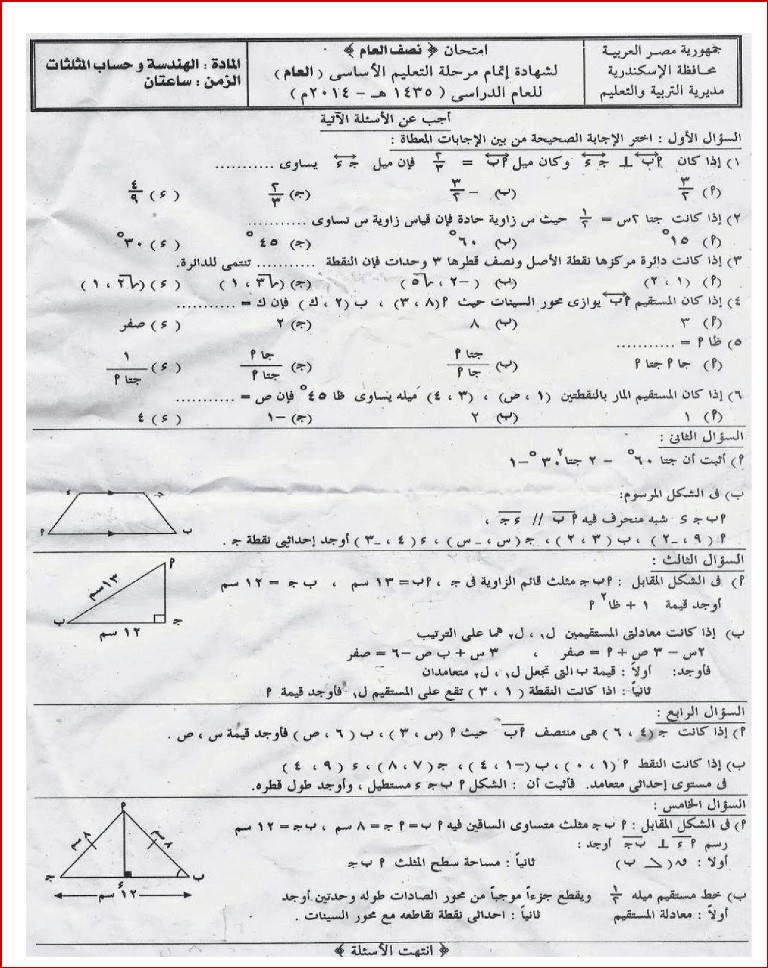 جمهورية مصر العربية
محافظة الإسكندرية
مديرية التربية والتعليم
امتحان ﴿ نصف العام ﴾
لشهادة إتمام مرحلة التعليم الأساسى ( العام )
للعام الدراسى ( ١٤٣٥ هـ - ٢٠١٤م )
المادة : الهندسة و حساب المثلثات
الزمن : ساعتان
أجب عن الأسئلة الآتية
السؤال الأول : اختر الإجابة الصحيحة من بين الإجابات المعطاة :
١) إذا كان ﺍب ⊥ جـ ء وكان ميل ﺍب = ٢/٣ فإن ميل جـ ء يساوى ...........
(ﺍ) ٣/٢ (ب) - ٣/٢ (جـ) ٢/٣ (ء) ٤/٩
٢) إذا كانت جتا ٢س = ١/٢ حيث س زاوية حادة فإن قياس زاوية س تساوى ...........
(ﺍ) ١٥° (ب) ٦٠° (جـ) ٤٥° (ء) ٣٠°
٣) إذا كانت دائرة مركزها نقطة الأصل ونصف قطرها ٣ وحدات فإن النقطة ........... تنتمى للدائرة.
(ﺍ) (١ ، ٢) (ب) (-٢ ، √٥) (جـ) (√٣ ، ١) (ء) (√٢ ، ١)
٤) إذا كان المستقيم ﺍب يوازى محور السينات حيث ﺍ(٨ ، ٣) ، ب (٢ ، ك) فإن ك = ...........
(ﺍ) ٣ (ب) ٨ (جـ) ٢ (ء) صفر
٥) ظا ﺍ = ...........
(ﺍ) جا ﺍ جتا ﺍ (ب) جتا ﺍ/جا ﺍ (جـ) جا ﺍ/جتا ﺍ (ء) ١/جتا ﺍ
٦) إذا كان المستقيم المار بالنقطتين (١ ، ص) ، (٣ ، ٤) ميله يساوى ظا ٤٥° فإن ص = ...........
(ﺍ) ١ (ب) ٢ (جـ) -١ (ء) ٤
السؤال الثانى :
ﺍ) أثبت أن جتا ٦٠° = ٢ جتا²٣٠° - ١
ب) فى الشكل المرسوم:
ﺍ ب جـ ء شبه منحرف فيه ﺍب // ءجـ ،
ﺍ (٩ ، -٢) ، ب (٣ ، ٢) ، جـ (س ، -س) ، ء (٤ ، -٣) أوجد إحداثيى نقطة جـ .
ء جـ
ﺍ ب
السؤال الثالث :
ﺍ) فى الشكل المقابل : ﺍ ب جـ مثلث قائم الزاوية فى جـ ، ﺍب = ١٣ سم ، ب جـ = ١٢ سم
أوجد قيمة ١ + ظا² ﺍ
ﺍ
١٣سم
ب جـ
١٢ سم
ب) إذا كانت معادلتى المستقيمين ل١ ، ل٢ هما على الترتيب
٢س - ٣ ص + ﺍ = صفر ، ٣ س + ب ص - ٦ = صفر
فأوجد: أولاً : قيمة ب التى تجعل ل١ ، ل٢ متعامدان
ثانياً : اذا كانت النقطة (١ ، ٣) تقع على المستقيم ل١ فأوجد قيمة ﺍ
السؤال الرابع :
ﺍ) إذا كانت جـ (٤ ، ٦) هى منتصف ﺍب حيث ﺍ (س ، ٣) ، ب (٦ ، ص) فأوجد قيمة س ، ص .
ب) إذا كانت النقط ﺍ (١ ، ٠) ، ب (-١ ، ٤) ، جـ (٧ ، ٨) ، ء (٩ ، ٤)
فى مستوى إحداثى متعامد. فأثبت أن : الشكل ﺍ ب جـ ء مستطيل ، وأوجد طول قطره.
السؤال الخامس :
ﺍ) فى الشكل المقابل : ﺍ ب جـ مثلث متساوى الساقين فيه ﺍب = ﺍجـ = ٨ سم ، ب جـ = ١٢ سم
رسم ﺍء ⊥ ب جـ أوجد :
أولاً : ق(∠ ب) ثانياً : مساحة سطح المثلث ﺍ ب جـ
ﺍ
٨ سم ٨ سم
جـ ء ب
١٢ سم
ب) خط مستقيم ميله ١/٢ ويقطع جزءاً موجباً من محور الصادات طوله وحدتين أوجد
أولاً : معادلة المستقيم ثانياً : احداثى نقطة تقاطعه مع محور السينات .
﴿ انتهت الأسئلة ﴾